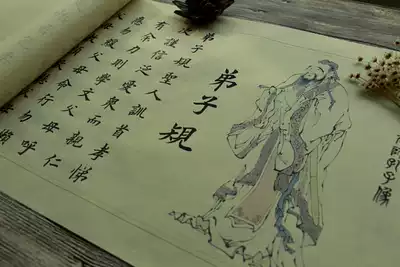 弟子規
聖人訓
首孝悌
謹信
愛
而親仁
力
則學文
父母呼
勿緩
父母命
行勿懶
弟子規
子像